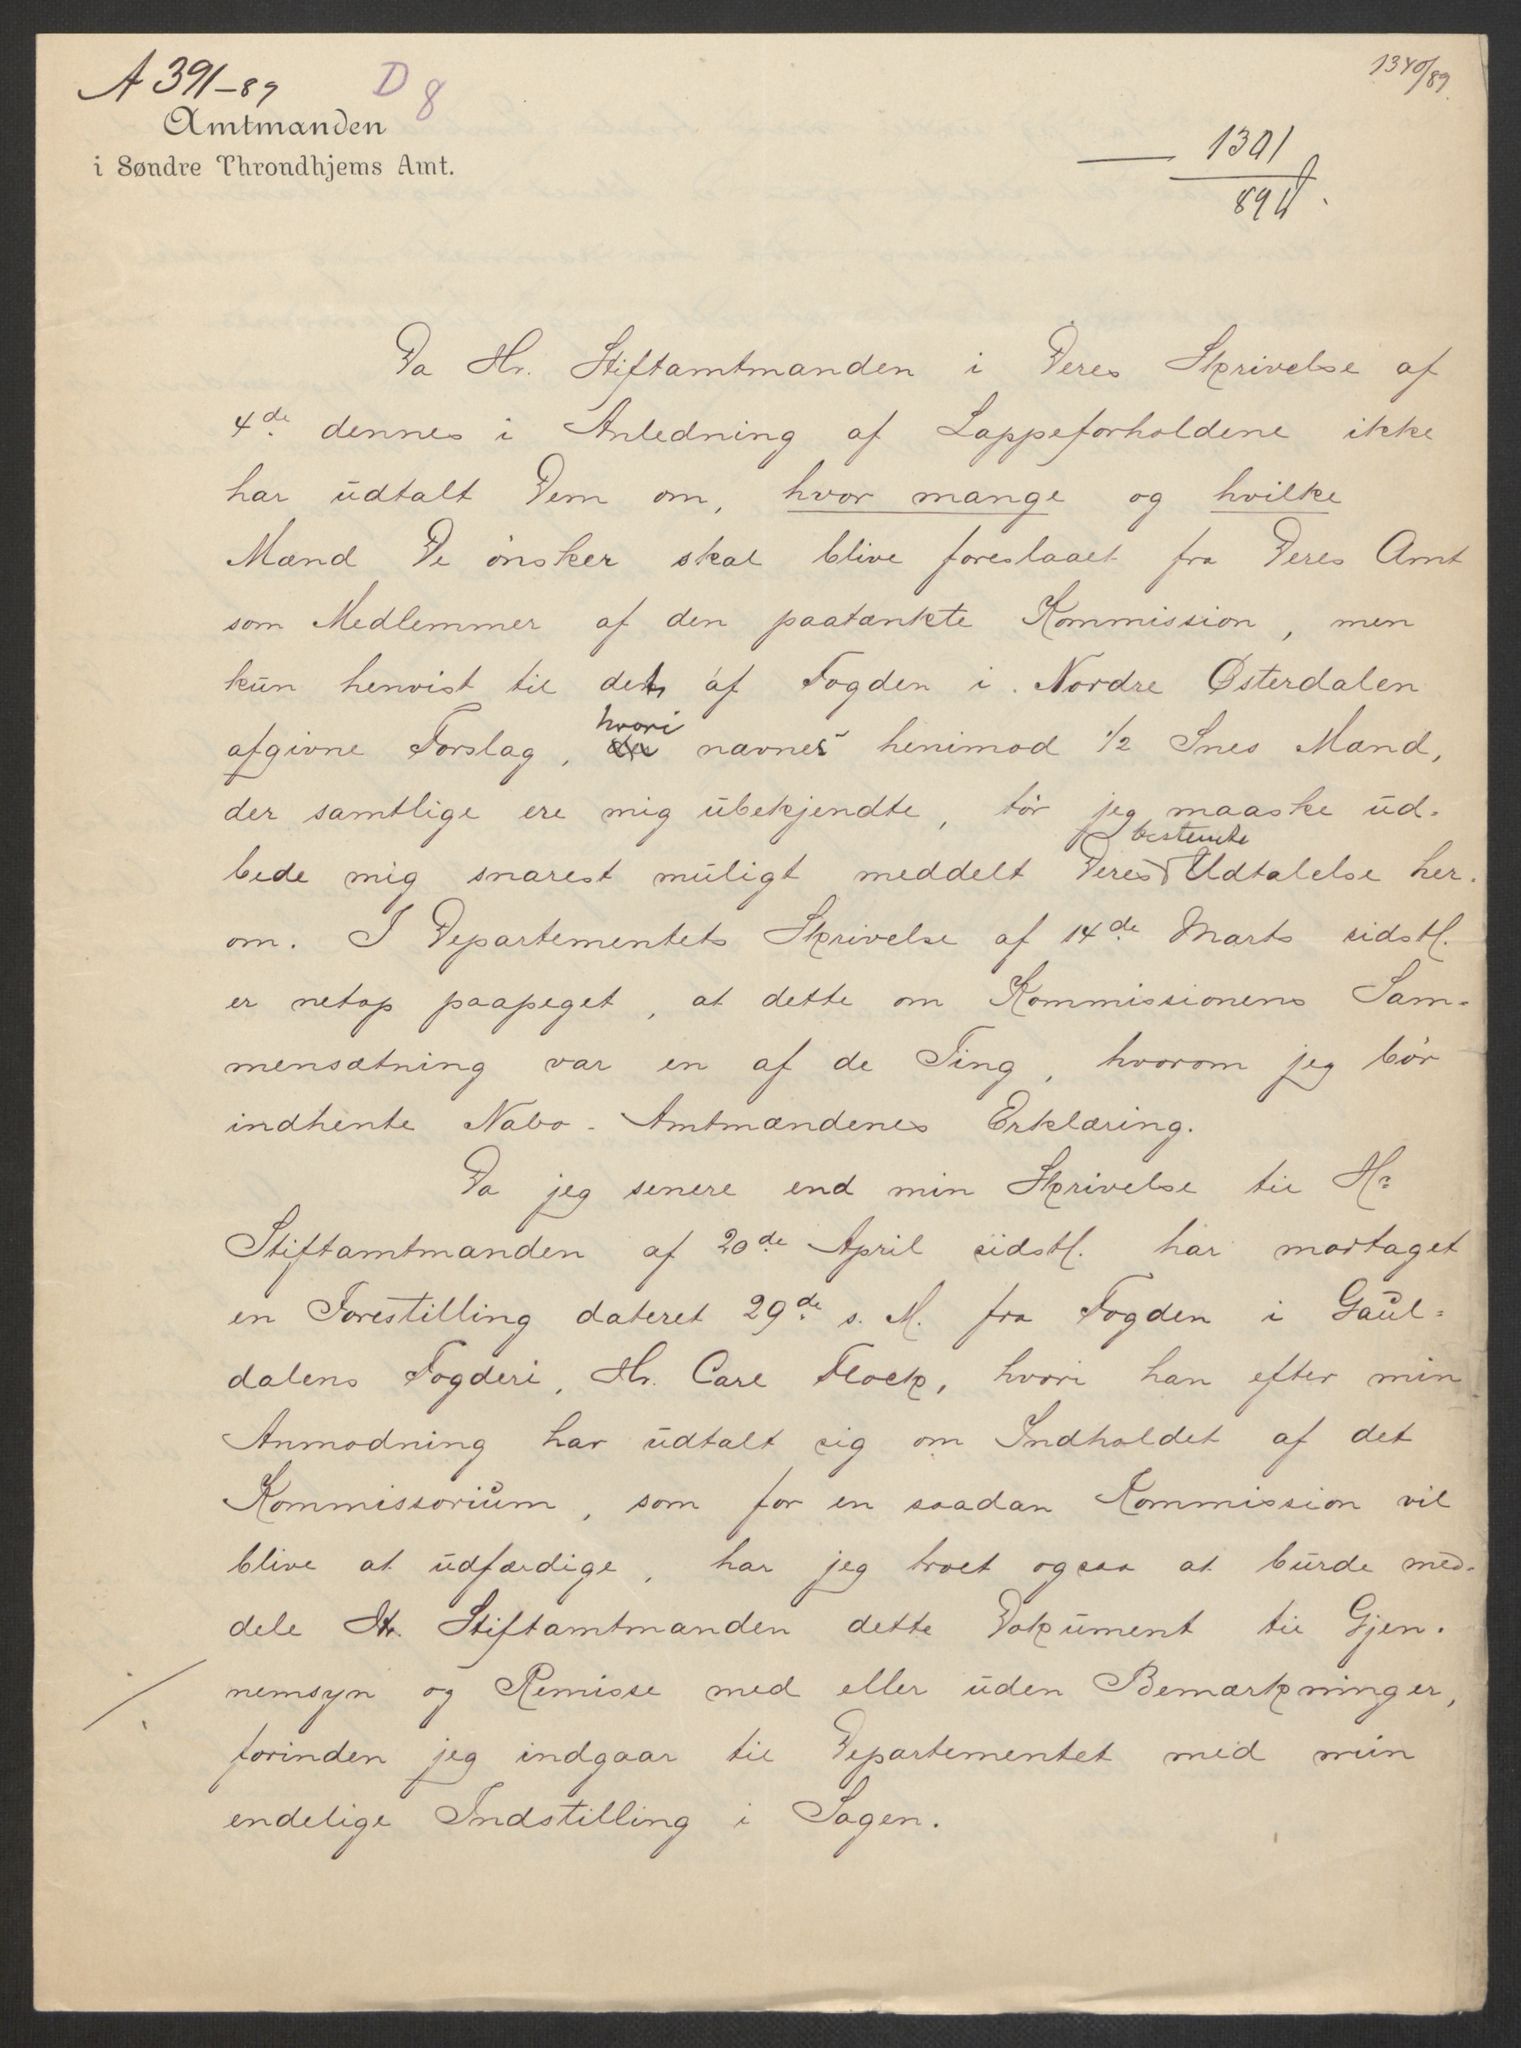 A 391-89
D 8
1340/89
Amtmanden
i Søndre Throndhjems Amt.
1301
89
Da Hr. Stiftamtmanden i Deres Skrivelse af
4de dennes i Anledning af Lappeforholdene ikke
har udtalt Dem om, hvor mange og hvilke
Mænd De ønsker skal blive foreslaaet fra Deres Amt
som Medlemmer af den paatænkte Kommission, men
kun henvist til det af Fogden i Nordre Østerdalen
hvori
afgivne Forslag, nævnes henimod 1/2 Snes Mænd,
der samtlige ere mig ubekjendte, tør jeg maaske ud-
bestemte
bede mig snarest muligt meddelt Deres Udtalelse her-
om. I Departementets Skrivelse af 14de Marts sidstl.
er netop paapeget, at dette om Kommissionens Sam-
mensætning var en af de Ting, hvorom jeg bør
indhente Nabo-Amtmændenes Erklæring.
Da jeg senere end min Skrivelse til Hr
Stiftamtmanden af 20de April sidstl. har mortaget
en Forestilling dateret 29de s. M. fra Fogden i Gaul-
dalens Fogderi, Hr. Carl Flock, hvori han efter min
Anmodning har udtalt sig om Indholdet af det
Kommissorium, som for en saadan Kommission vil
blive at udfærdige, har jeg troet ogsaa at burde med-
dele Hr. Stiftamtmanden dette Dokument til Gjen-
nemsyn og Remisse med eller uden Bemærkninger,
forinden jeg indgaar til Departementet med min
endelige Indstilling i Sagen.